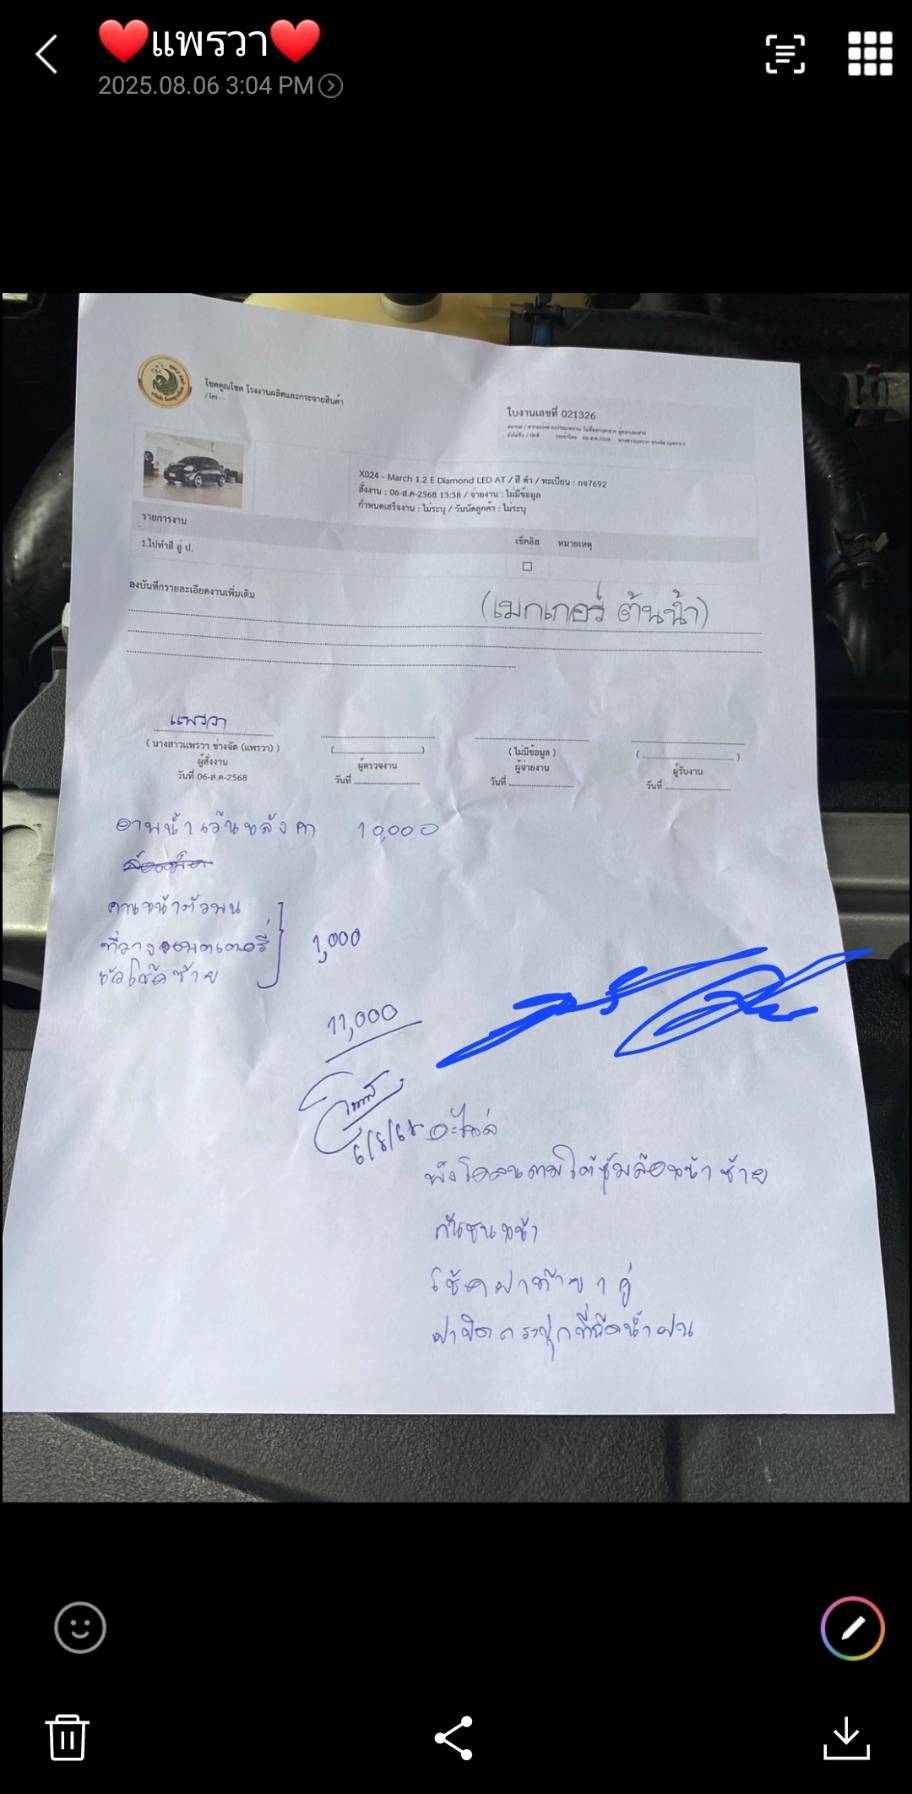 ❤️แพรวา❤️
2025.08.06 3:04 PM
โชคคูณโชค โรงงานผลิตและกระจายสินค้า
/ โทร : -
ใบงานเลขที่ 021326
X024 - March 1.2 E Diamond LED AT / สี ดำ / ทะเบียน : กจ7692
สั่งงาน : 06-ส.ค-2568 13:38 / จ่ายงาน : ไม่มีข้อมูล
กำหนดเสร็จงาน : ไม่ระบุ / วันนัดลูกค้า : ไม่ระบุ
รายการงาน
เช็คลิส หมายเหตุ
1.ไปทำสี อู่ ป.
ลงบันทึกรายละเอียดงานเพิ่มเติม
(เมกเกอร์ ต้นน้ำ)
แพรวา
( นางสาวแพรวา ช่างจัด (แพรวา) )
ผู้สั่งงาน
วันที่ 06-ส.ค-2568
ผู้ตรวจงาน
วันที่
( ไม่มีข้อมูล )
ผู้จ่ายงาน
วันที่
ผู้รับงาน
วันที่
อาบน้ำเว้นหลังคา 10,000
คานหน้าตัวบน
ที่วางแบตเตอรี่
หัวโช๊คซ้าย
1,000
11,000
6/8/68
อะไหล่
พังโคลนตามใต้ซุ้มล้อหน้าซ้าย
กันชนหน้า
โช้คฝาท้าย 1 คู่
ฝาปิดกระปุกที่ฉีดน้ำฝน